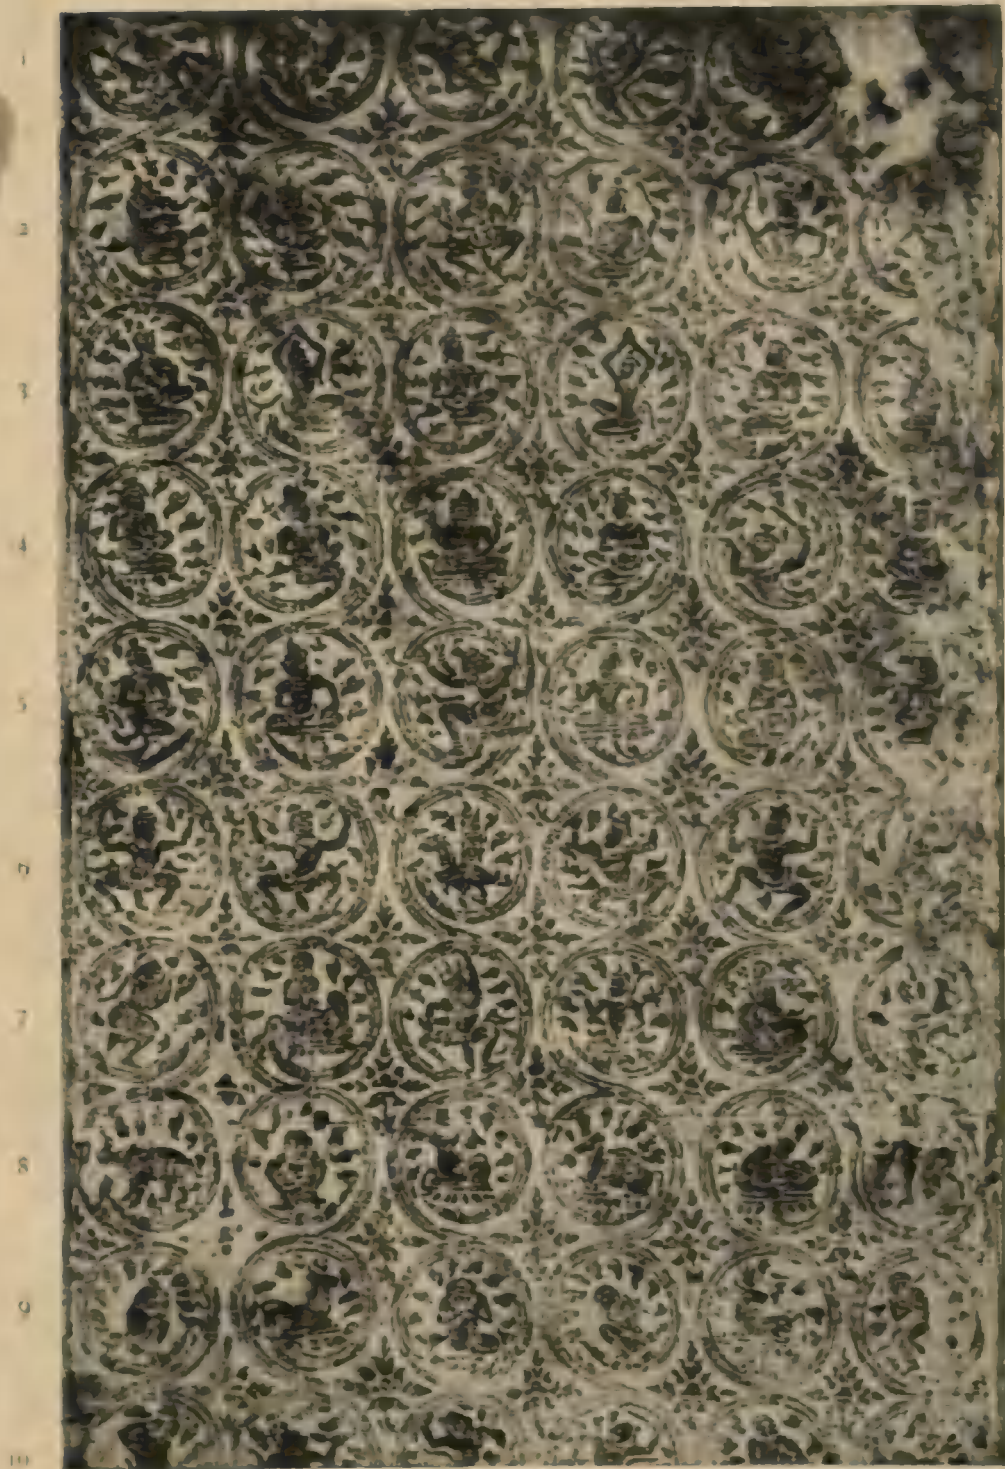 1
2
3
4
5
7
8
9
10